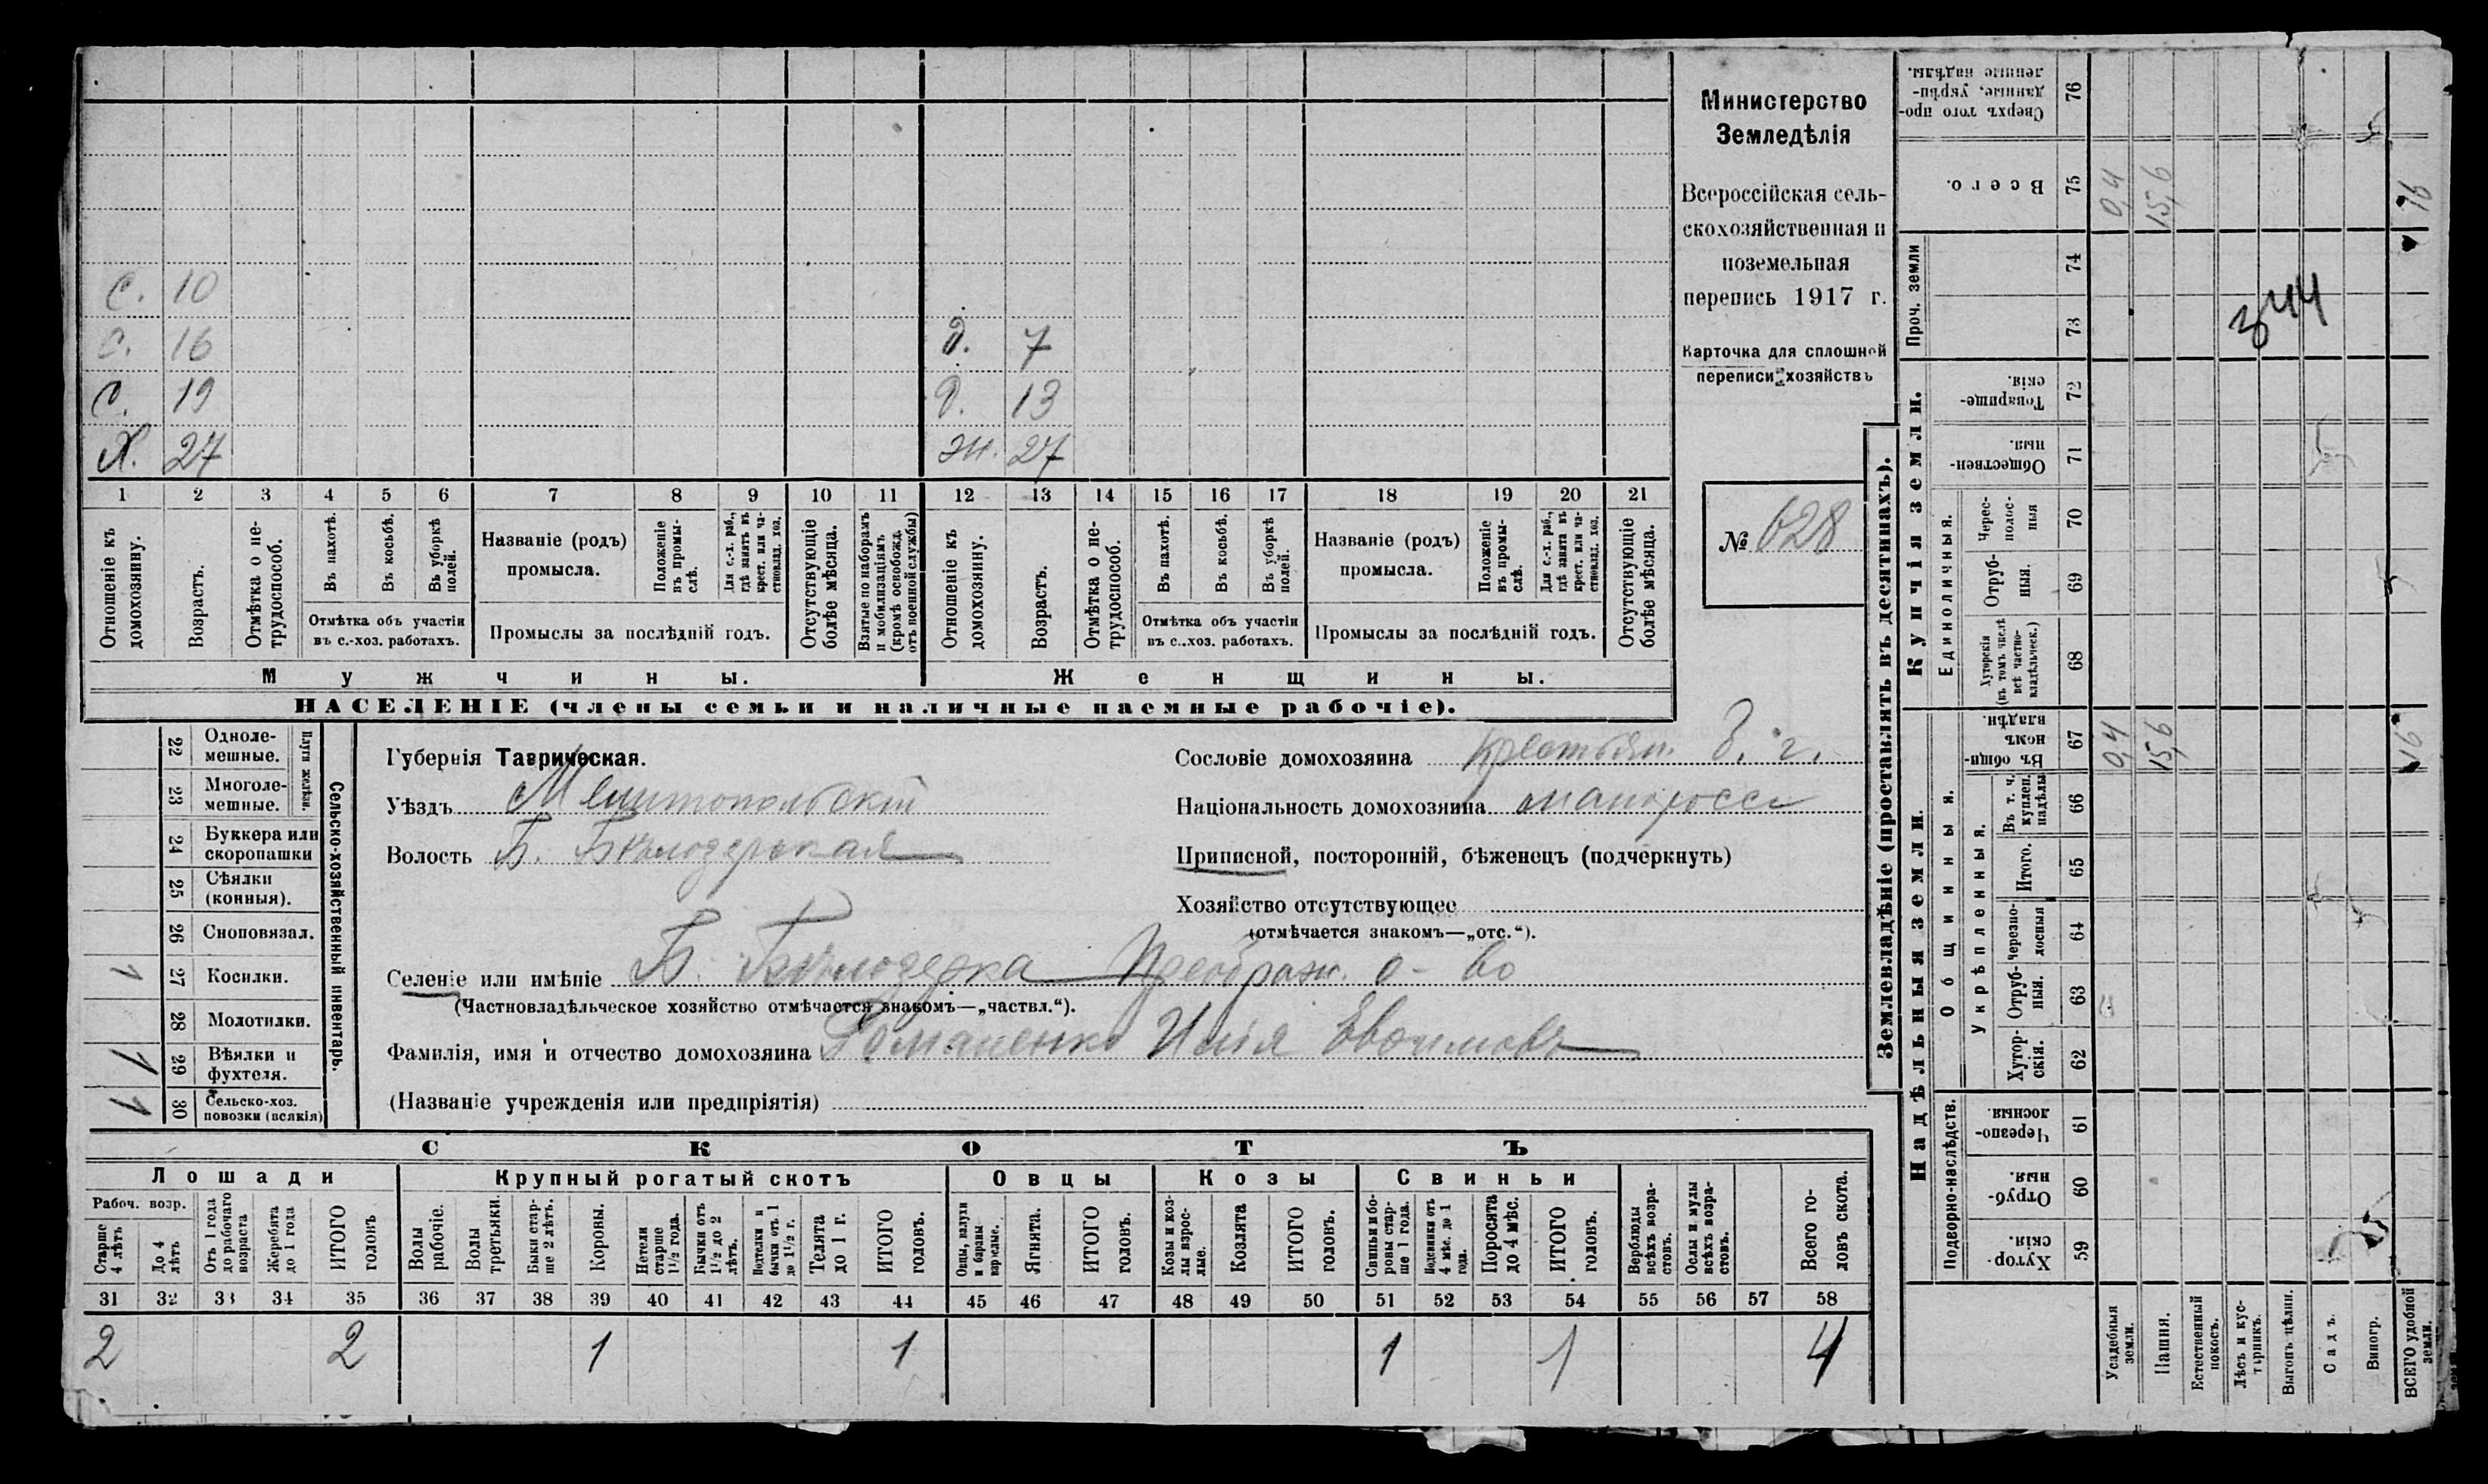 Министерство
Земледѣлія
Всероссійская сель-
скохозяйственная и
поземельная
перепись 1917 г.
Карточка для сплошной
переписи хозяйствъ
№ 628
С. 10
С. 16
С. 19
Х. 27
д. 7
д. 13
ж. 27
1 2 3 4 5 6 7 8 9 10 11 12 13 14 15 16 17 18 19 20 21
Отношеніе къ домохозяину.
Возрастъ.
Отмѣтка о не-трудоспособ.
Въ пахотѣ.
Въ косьбѣ.
Въ уборкѣ полей.
Отмѣтка объ участіи въ с.-хоз. работахъ.
Названіе (родъ) промысла.
Положеніе въ промы-слѣ.
Для с.-х. раб., гдѣ занятъ въ крест. или ча-стновлад. хоз.
Промыслы за послѣдній годъ.
Отсутствующіе болѣе мѣсяца.
Взятые по наборамъ и мобилизаціямъ (кромѣ освобожд. отъ военной службы)
Отношеніе къ домохозяину.
Возрастъ.
Отмѣтка о не-трудоспособ.
Въ пахотѣ.
Въ косьбѣ.
Въ уборкѣ полей.
Отмѣтка объ участіи въ с..хоз. работахъ.
Названіе (родъ) промысла.
Положеніе въ промы-слѣ.
Для с.-х. раб., гдѣ занята въ крест. или ча-стновлад. хоз.
Промыслы за послѣдній годъ.
Отсутствующіе болѣе мѣсяца.
Мужчины.
Женщины.
НАСЕЛЕНІЕ (члены семьи и наличные наемные рабочіе).
Сельско-хозяйственный инвентарь.
Плуги желѣзн.
22 Одноле-мешные.
23 Многоле-мешные.
24 Буккера или скоропашки
25 Сѣялки (конныя).
26 Сноповязал.
1 27 Косилки.
28 Молотилки.
1 29 Вѣялки и фухтеля.
1 30 Сельско-хоз. повозки (всякія)
Губернія Таврическая.
Уѣздъ Мелитопольскій
Волость Б. Бѣлозерская
Селеніе или имѣніе Б. Бѣлозерка Преображ. о-во
(Частновладѣльческое хозяйство отмѣчается знакомъ—„частвл.“).
Фамилія, имя и отчество домохозяина Романенко Илія Евфимовъ
(Названіе учрежденія или предпріятія)
Сословіе домохозяина крестьян. Г. г.
Національность домохозяина малороссъ
Приписной, посторонній, бѣженецъ (подчеркнуть)
Хозяйство отсутствующее
(отмѣчается знакомъ—„отс.“).
СКОТЪ
Лошади
Крупный рогатый скотъ
Овцы
Козы
Свиньи
Рабоч. возр.
Старше 4 лѣтъ
До 4 лѣтъ
Отъ 1 года до рабочаго возраста
Жеребята до 1 года
ИТОГО головъ
Волы рабочіе.
Волы третьяки.
Быки стар-ше 2 лѣтъ.
Коровы.
Нетели старше 1½ года.
Бычки отъ 1½ до 2 лѣтъ.
Нетелки и бычки отъ 1 до 1½ г.
Телята до 1 г.
ИТОГО головъ.
Овцы, валухи и бараны взрослые.
Ягнята.
ИТОГО головъ.
Козы и коз-лы взрос-лые.
Козлята
ИТОГО головъ.
Свиньи и бо-ровы стар-ше 1 года.
Подсвинки отъ 4 мѣс. до 1 года.
Поросята до 4 мѣс.
ИТОГО головъ.
Верблюды всѣхъ возра-стовъ.
Ослы и мулы всѣхъ возра-стовъ.
Всего го-ловъ скота.
31 32 33 34 35 36 37 38 39 40 41 42 43 44 45 46 47 48 49 50 51 52 53 54 55 56 57 58
2 2 1 1 1 1 4
Землевладѣніе (проставлять въ десятинахъ).
Надѣльныя земли.
Купчія земли.
Проч. земли
Подворно-наслѣдств.
Общинныя.
Укрѣпленныя.
Единоличныя.
59 Хутор-скія.
60 Отруб-ныя.
61 Черезпо-лосныя.
62 Хутор-скія.
63 Отруб-ныя.
64 Черезпо-лосныя
65 Итого.
66 Въ т. ч. куплен. надѣлы
67 Въ общин-номъ владѣн.
68 Хуторскія (въ томъ числѣ всѣ частно-владѣльческ.)
69 Отруб-ныя.
70 Черес-полос-ныя
71 Обществен-ныя.
72 Товарище-скія.
73
74
75 Всего.
76 Сверхъ того про-данные, укрѣп-ленные надѣлы.
Усадебныя земли.
Пашня.
Естественный покосъ.
Лѣсъ и кус-тарникъ.
Выгонъ цѣлин.
Садъ.
Виногр.
ВСЕГО удобной земли.
0,4
15,6
16
0,4
15,6
16
344